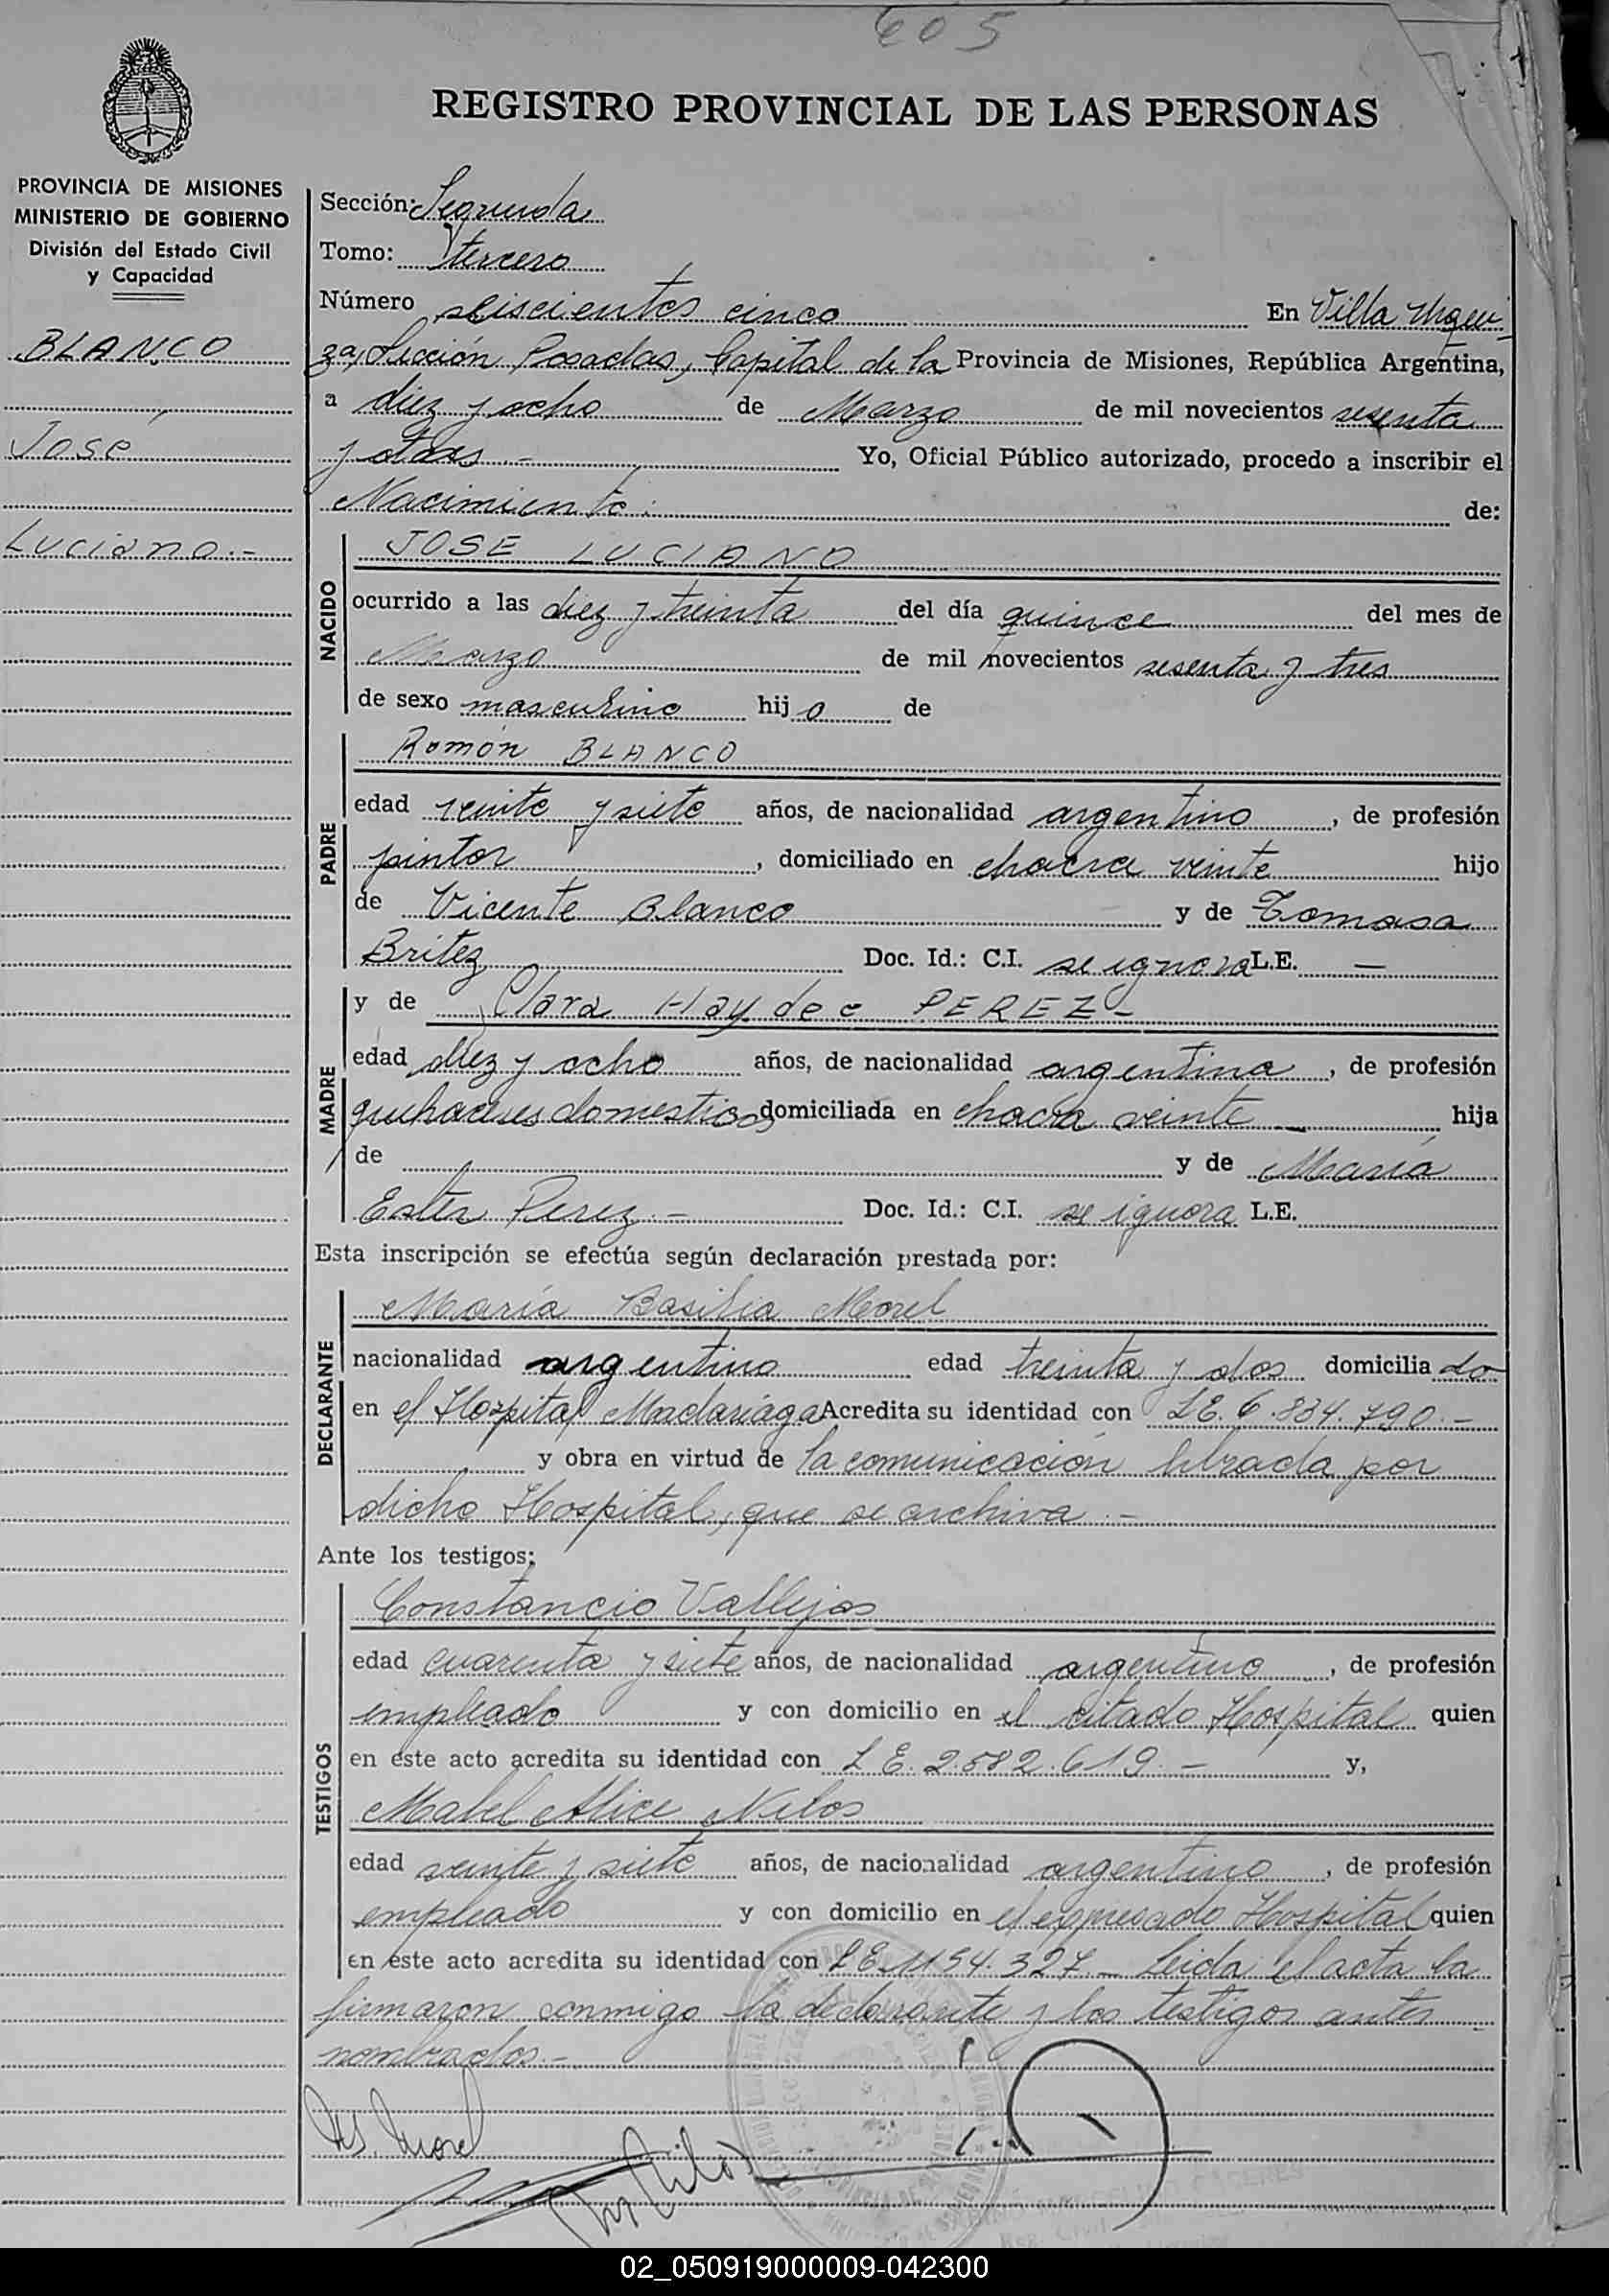 605
REGISTRO PROVINCIAL DE LAS PERSONAS
PROVINCIA DE MISIONES
MINISTERIO DE GOBIERNO
División del Estado Civil
y Capacidad
BLANCO
José
Luciano.-
Sección: Segunda
Tomo: tercero
Número seiscientos cinco En Villa Urqui-
za, Sección Posadas, Capital de la Provincia de Misiones, República Argentina,
a diez y ocho de Marzo de mil novecientos sesenta
y tres - Yo, Oficial Público autorizado, procedo a inscribir el
Nacimiento: de:
NACIDO
JOSE LUCIANO
ocurrido a las diez y treinta del día quince del mes de
Marzo de mil novecientos sesenta y tres
de sexo masculino hijo de
PADRE
Ramón BLANCO
edad veinte y siete años, de nacionalidad argentino, de profesión
pintor, domiciliado en chacra veinte hijo
de Vicente Blanco y de Tomasa
Britez Doc. Id.: C.I. se ignora L.E. —
MADRE
y de Clara Haydee PEREZ-
edad diez y ocho años, de nacionalidad argentina, de profesión
quehaceres domesticos domiciliada en chacra veinte — hija
de y de María
Ester Perez.- Doc. Id.: C.I. se ignora L.E.
Esta inscripción se efectúa según declaración prestada por:
DECLARANTE
María Basilia Morel
nacionalidad argentina edad treinta y dos domiciliado
en el Hospital Madariaga Acredita su identidad con LE. 6.834.790.-
y obra en virtud de la comunicación librada por
dicho Hospital, que se archiva.-
Ante los testigos:
TESTIGOS
Constancio Vallejos
edad cuarenta y siete años, de nacionalidad argentino, de profesión
empleado y con domicilio en el citado Hospital quien
en este acto acredita su identidad con L E. 2.582.619.- y,
Mabel Alice Nilos
edad veinte y siete años, de nacionalidad argentino, de profesión
empleado y con domicilio en el expresado Hospital quien
en este acto acredita su identidad con LE. 1154.327.- Leida el acta la
firmaron conmigo la declarante y los testigos antes
nombrados.-
Morel
02_050919000009-042300